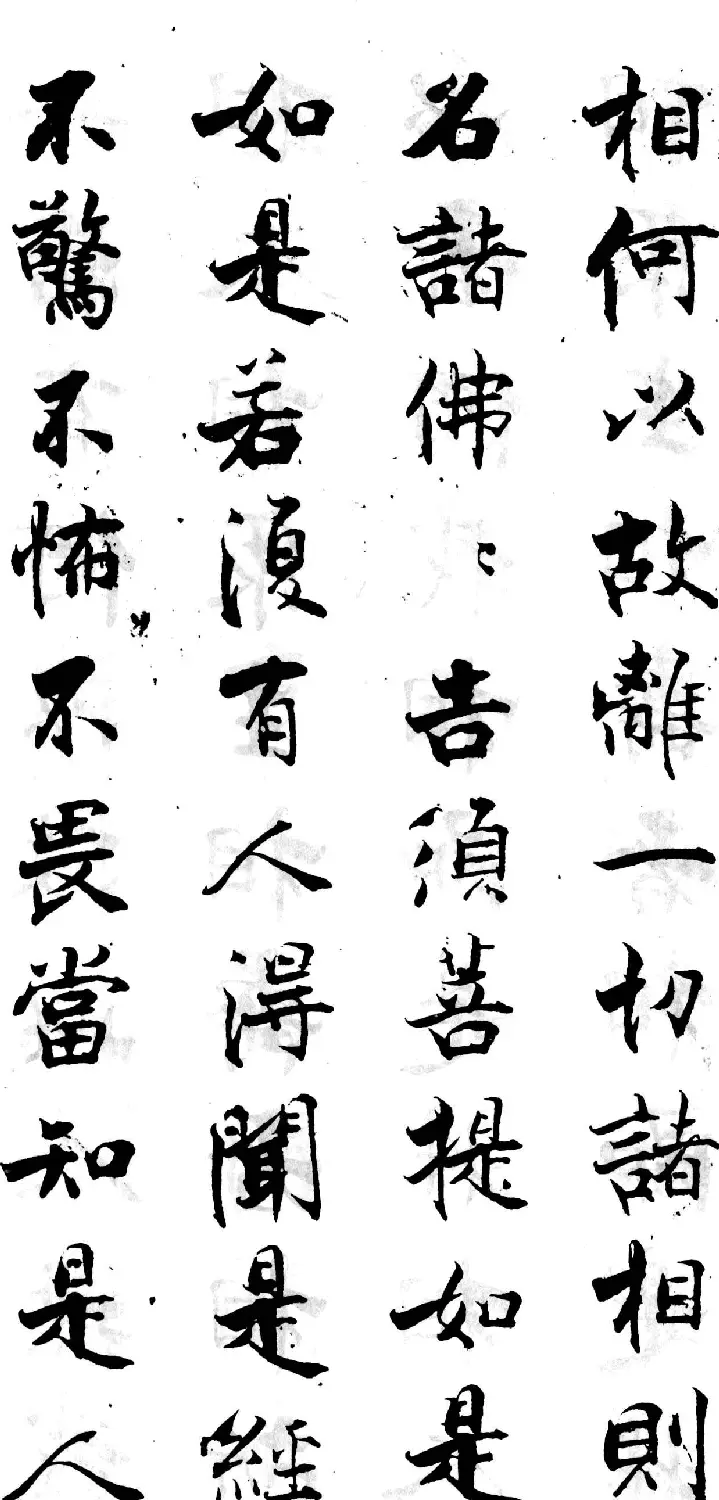 相何以故離一切諸相則
名諸佛〻告須菩提如是
如是若復有人得聞是經
不驚不怖不畏當知是人